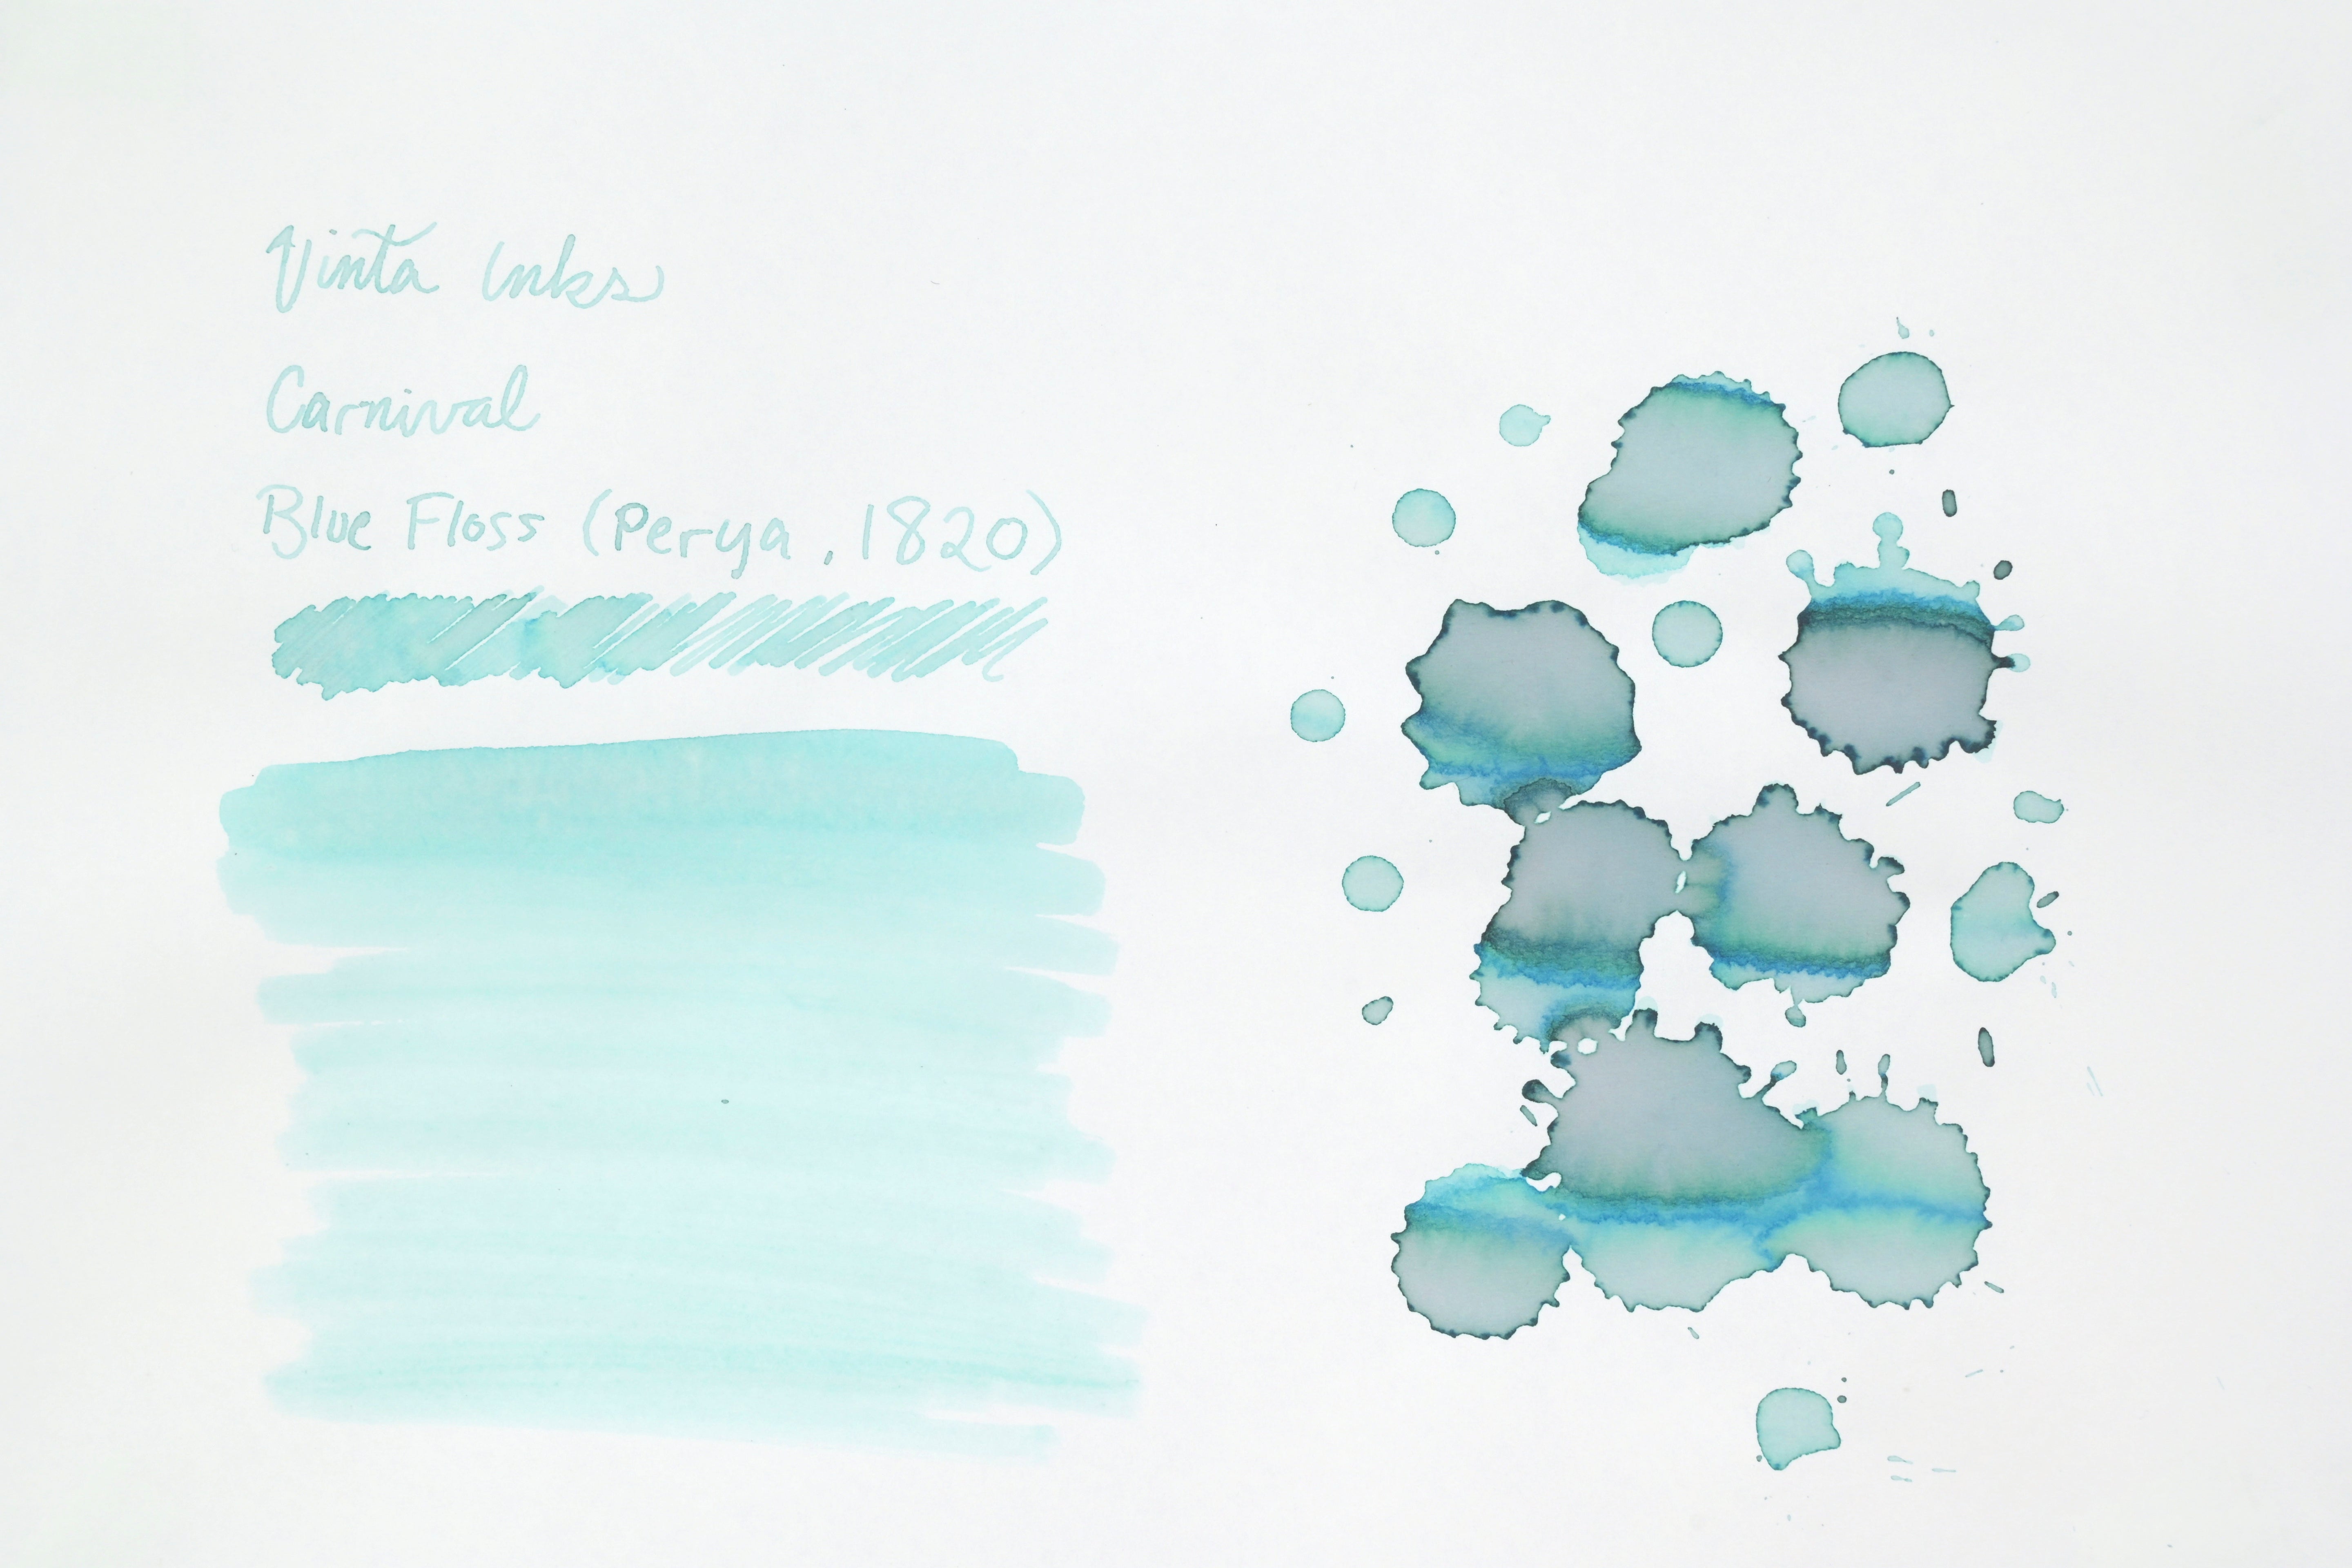 Vinta Inks
Carnival
Blue Floss (Perya, 1820)